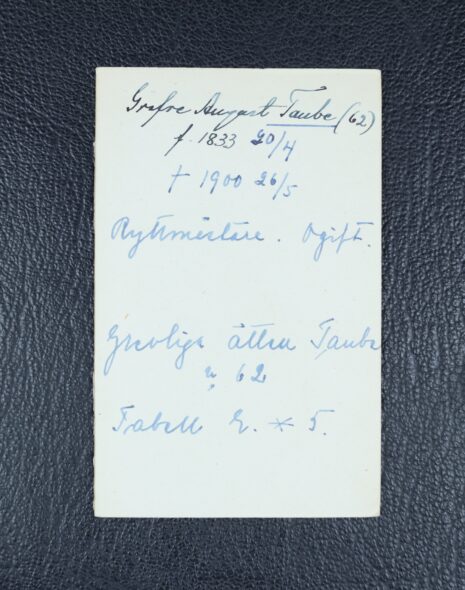 Grefve August Taube (62)
f. 1833 20/4
† 1900 26/5
Ryttmästare. Ogift.
Grevliga ätten Taube
n 62
Tabell 2. * 5.